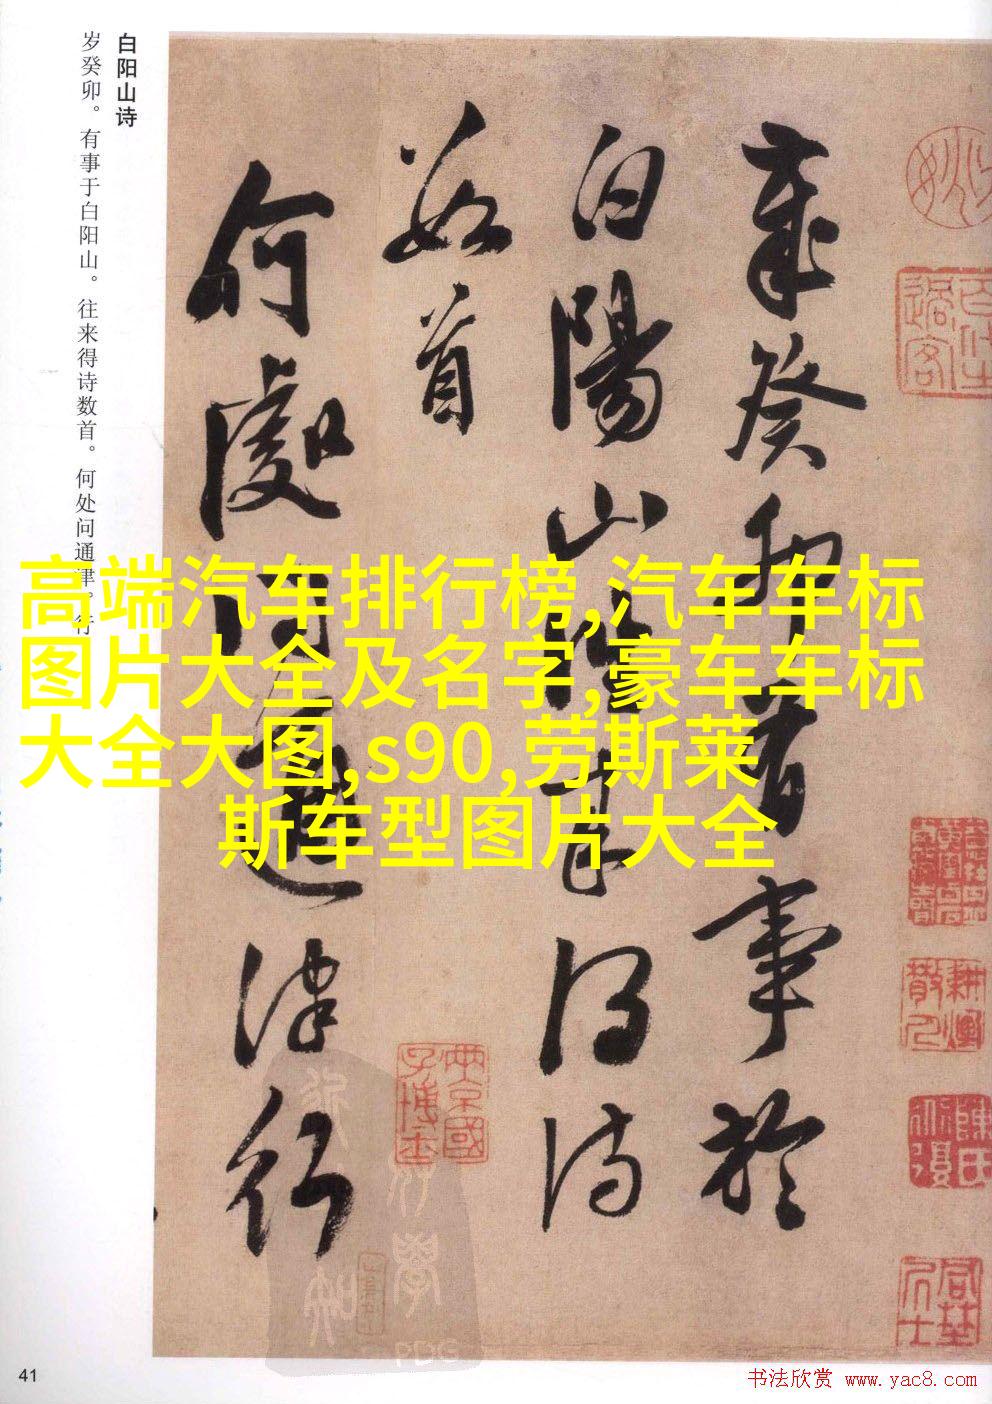 歲癸卯有事於
白陽山往来得詩
數首
何處问通津行
白阳山诗
岁癸卯。有事于白阳山。往来得诗数首。何处问通津。行
高端汽车排行榜,汽车车标
图片大全及名字,豪车车标
大全大图,s90,劳斯莱
斯车型图片大全
41
PDG
书法欣赏 www.yac8.com